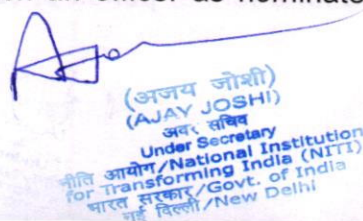 an officer as nominate
(अजय जोशी)
(AJAY JOSHI)
अवर सचिव
Under Secretary
नीति आयोग/National Institution
for Transforming India (NITI)
भारत सरकार/Govt. of India
नई दिल्ली/New Delhi